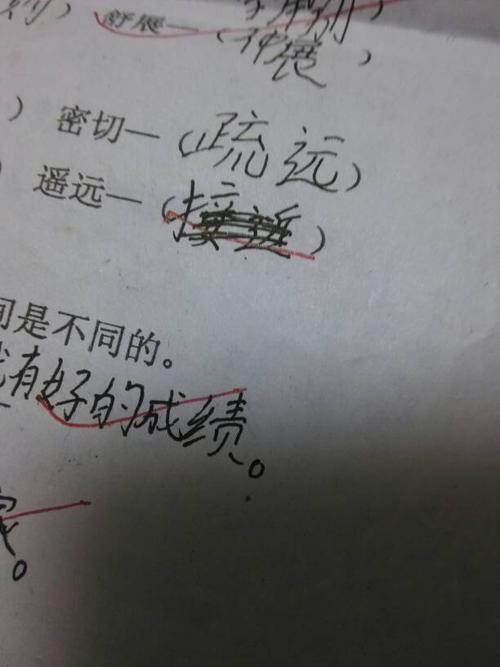 舒展—(伸展)
) 密切—(疏远)
) 遥远—(接近)
间是不同的。
有好的成绩。
。